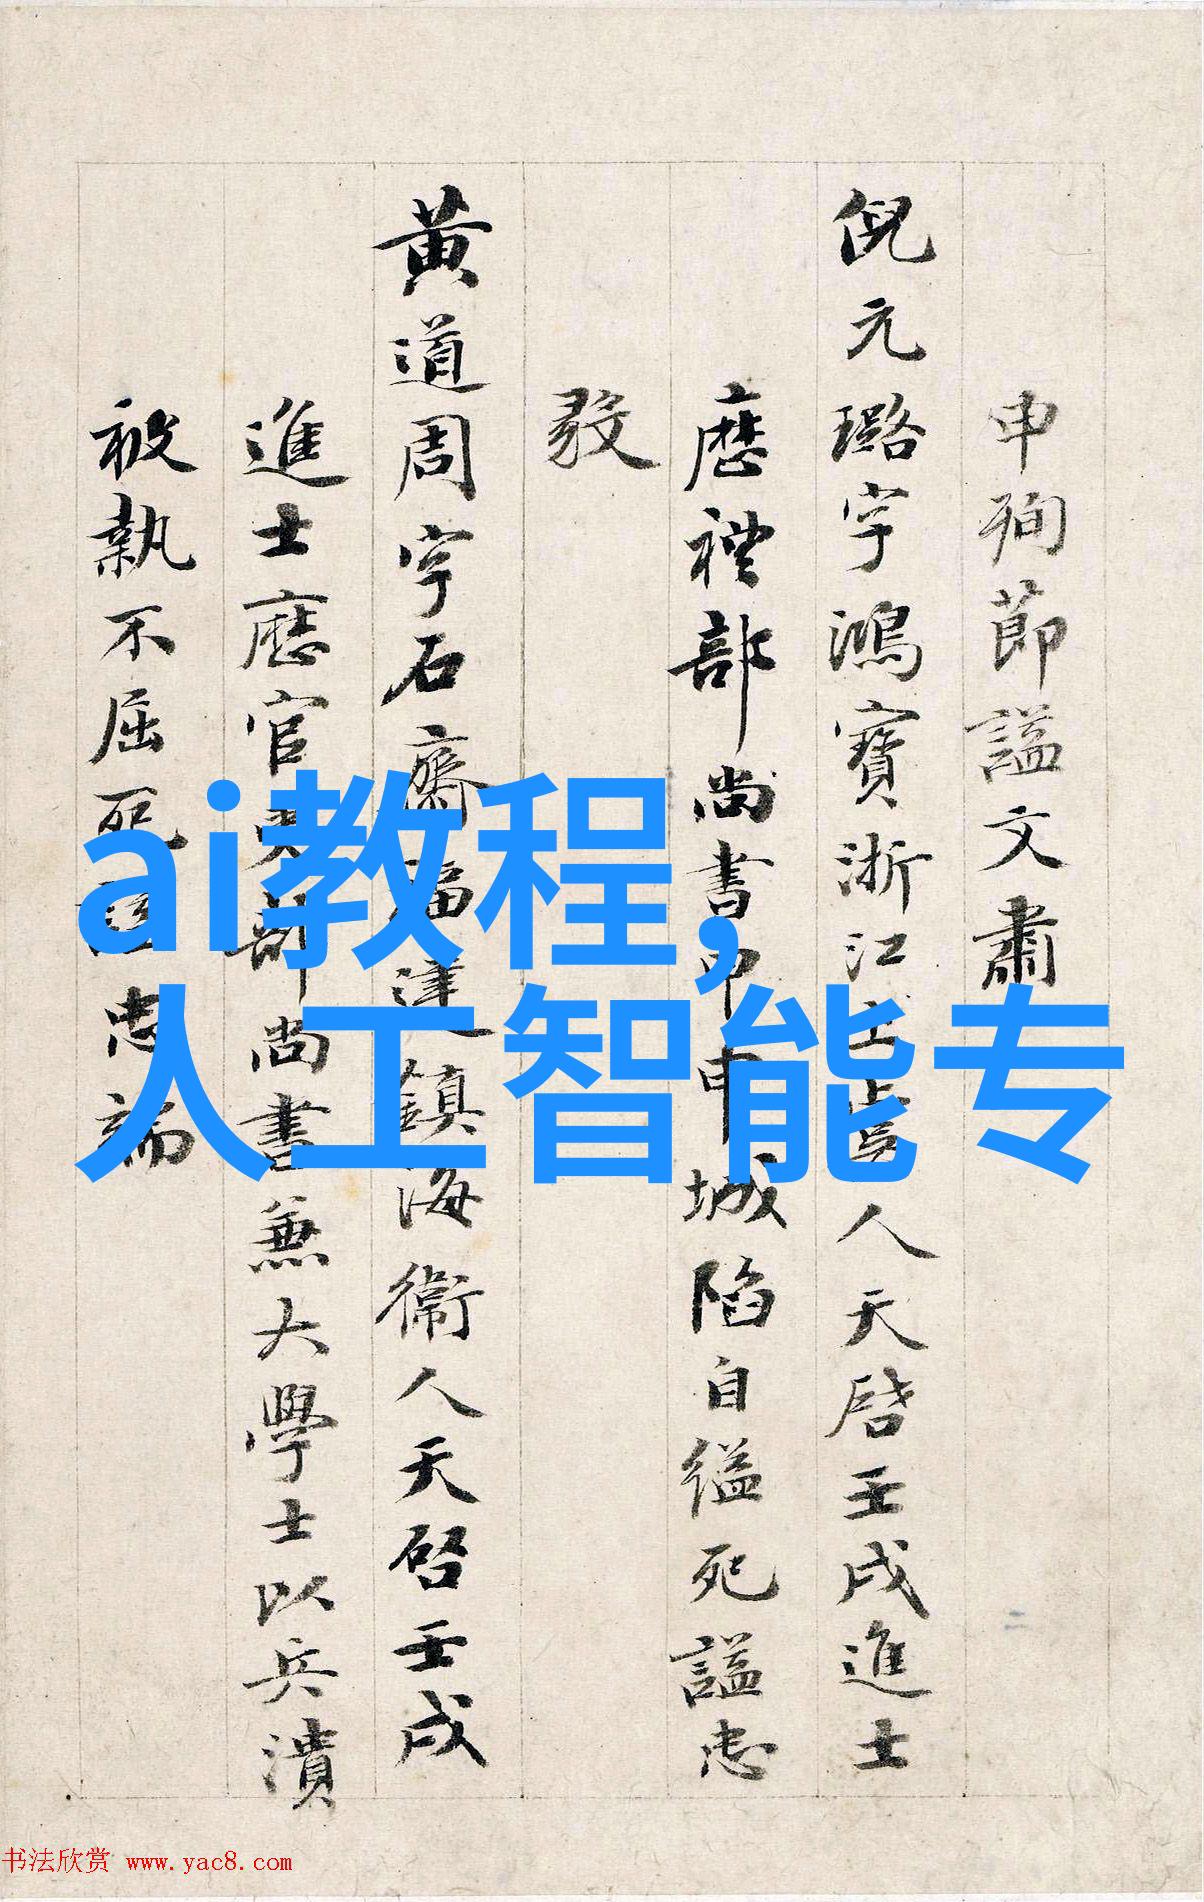 申殉節謚文肅
倪元璐字鴻寶浙江上虞人天啓壬戌進士
歷禮部尚書甲申城陷自縊死謚忠
黄道周字石齋福建鎮海衞人天啓壬戌
進士歷官吏部尚書兼大學士以兵潰
被執不屈死謚忠端
ai教程,
人工智能专
书法欣赏 www.yac8.com